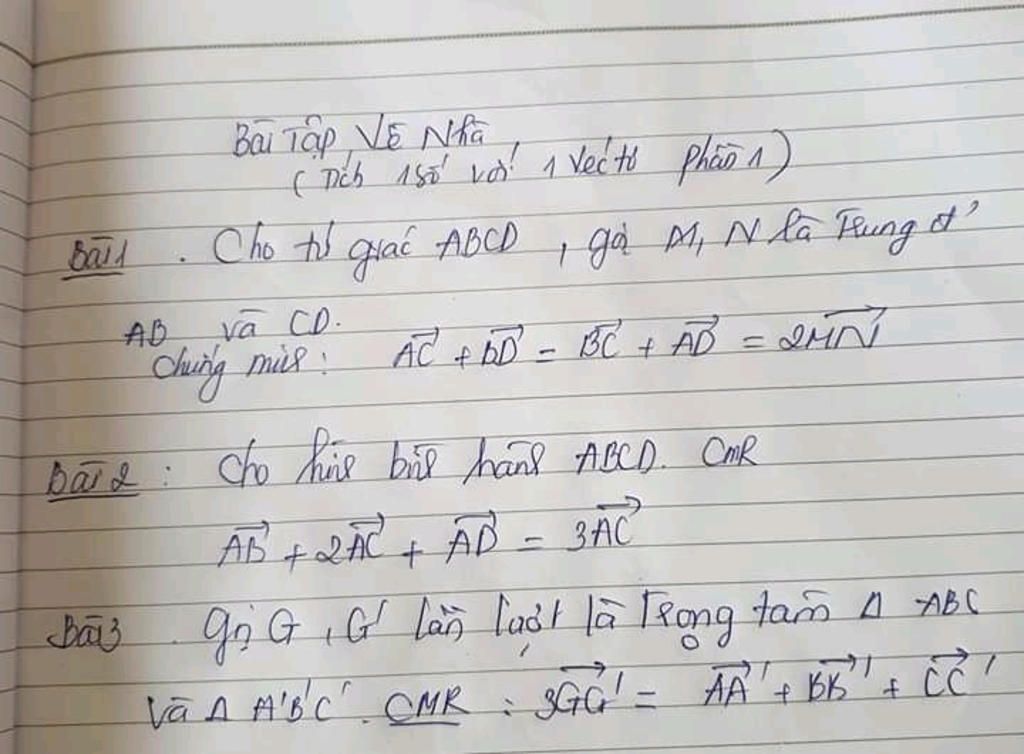 Bài Tập Về Nhà
( Tích 1 số với 1 véctơ phần 1 )
Bài 1 . Cho tứ giác ABCD , gọi M, N là Trung đ'
AB và CD.
Chứng minh : AC + BD = BC + AD = 2MN
Bài 2 : Cho hình bình hành ABCD. CmR
AB + 2AC + AD = 3AC
Bài 3 . Gọi G , G' lần lượt là Trọng tâm Δ ABC
Và Δ A'B'C' . CMR : 3GG' = AA' + BB' + CC'